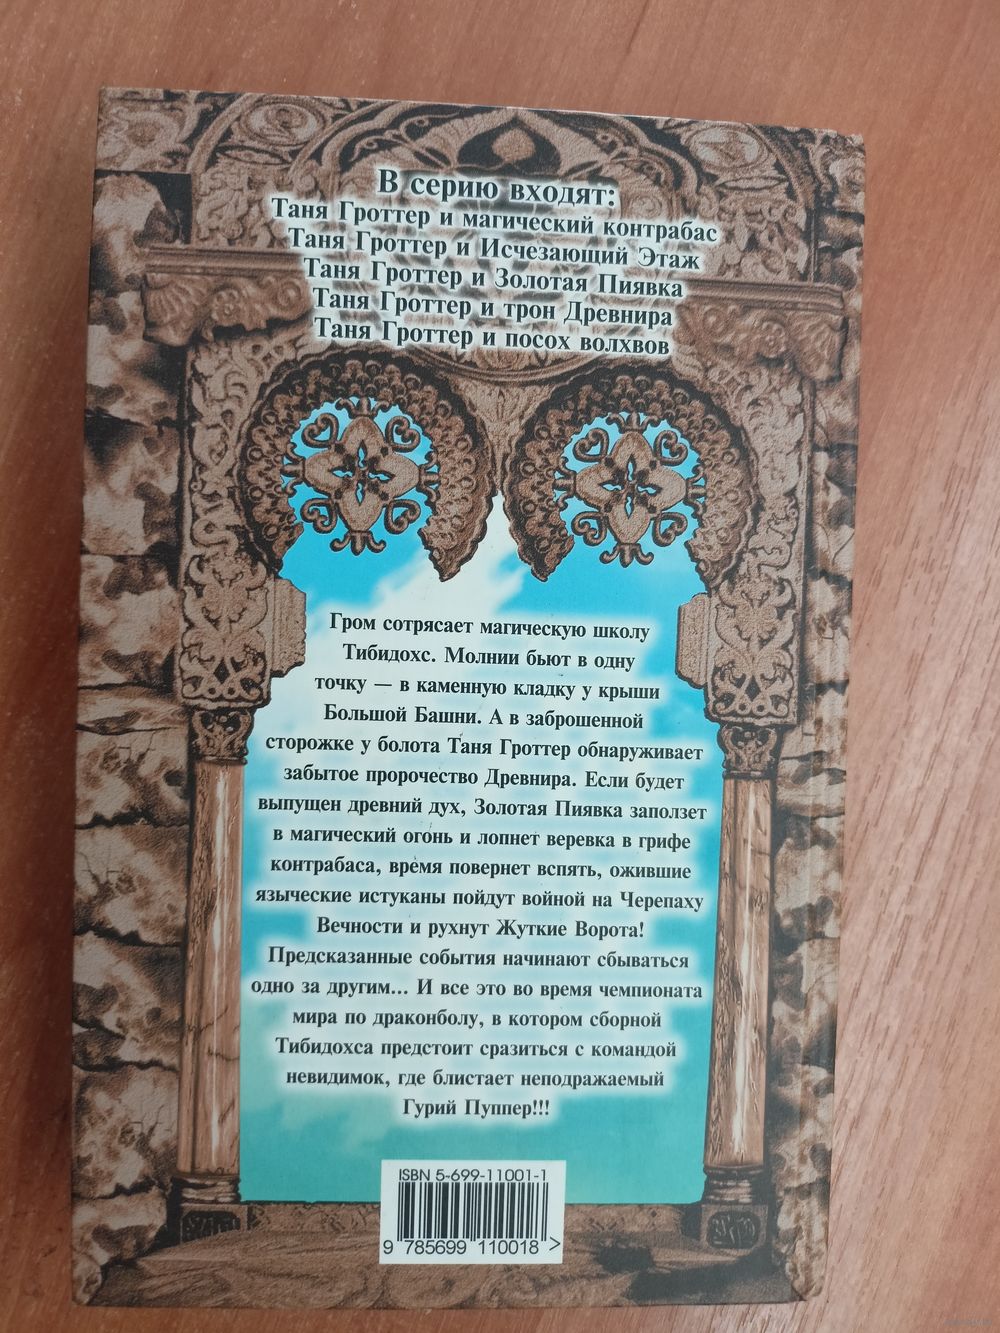 В серию входят:
Таня Гроттер и магический контрабас
Таня Гроттер и Исчезающий Этаж
Таня Гроттер и Золотая Пиявка
Таня Гроттер и трон Древнира
Таня Гроттер и посох волхвов
Гром сотрясает магическую школу
Тибидохс. Молнии бьют в одну
точку — в каменную кладку у крыши
Большой Башни. А в заброшенной
сторожке у болота Таня Гроттер обнаруживает
забытое пророчество Древнира. Если будет
выпущен древний дух, Золотая Пиявка заползет
в магический огонь и лопнет веревка в грифе
контрабаса, время повернет вспять, ожившие
языческие истуканы пойдут войной на Черепаху
Вечности и рухнут Жуткие Ворота!
Предсказанные события начинают сбываться
одно за другим... И все это во время чемпионата
мира по драконболу, в котором сборной
Тибидохса предстоит сразиться с командой
невидимок, где блистает неподражаемый
Гурий Пуппер!!!
ISBN 5-699-11001-1
9 785699 110018 >